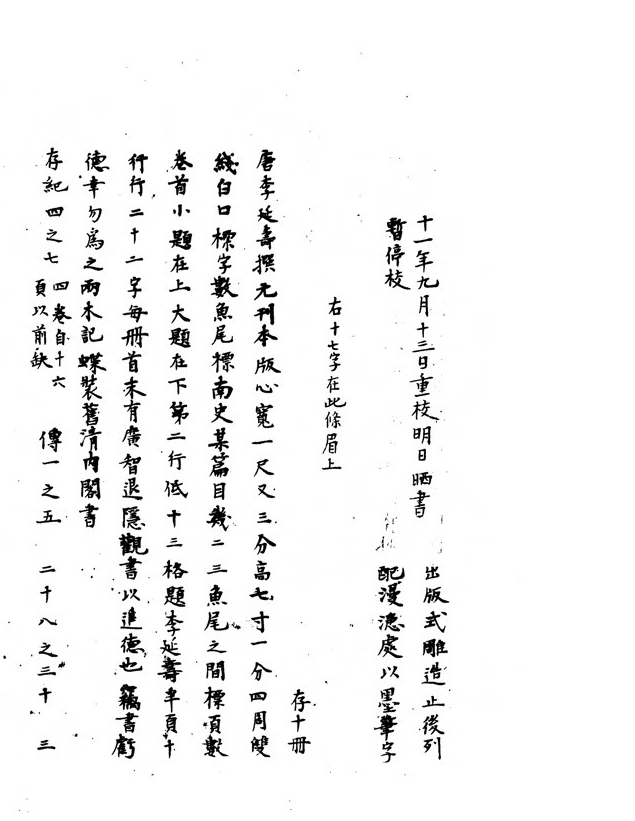 十一年九月十三日重校明日晒書
暫停校
出版式雕造止後列
配漫漶處以墨筆字
右十七字在此條眉上
存十冊
唐李延壽撰元刊本版心寬一尺又三分高七寸一分四周雙
綫白口標字數魚尾標南史某篇目幾二三魚尾之間標頁數
卷首小題在上大題在下第二行低十三格題李延壽半頁十
行行二十二字每冊首末有廣智退隱觀書以進德也竊書虧
德幸勿為之兩木記蝶裝舊清內閣書
存紀四之七 四卷自十六
頁以前缺 傳一之五 二十八之三十 三